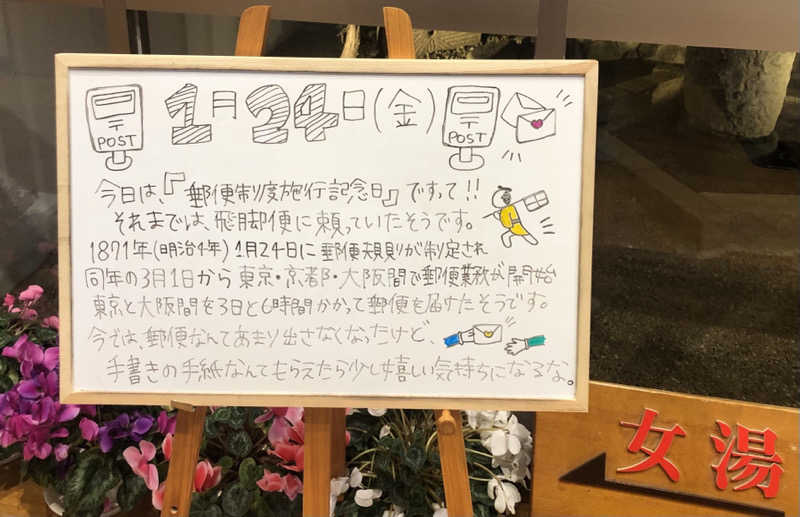 1月24日(金)
〒
POST
〒
POST
今日は、『郵便制度施行記念日』ですって!!
それまでは、飛脚便に頼っていたそうです。
1871年(明治4年) 1月24日に郵便規則が制定され
同年の3月1日から東京・京都・大阪間で郵便業務が開始
東京と大阪間を3日と6時間かかって郵便を届けたそうです。
今では、郵便なんてあまり出さなくなったけど、
手書きの手紙なんてもらえたら少し嬉しい気持ちになるな。
女湯